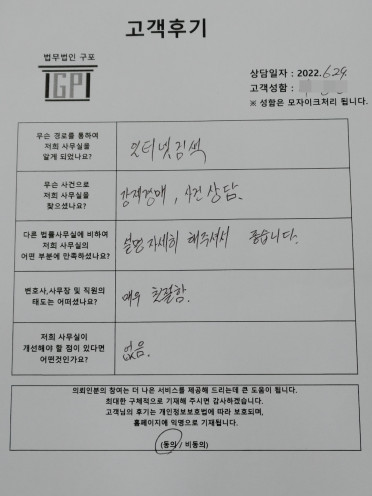 고객후기
법무법인 구포
IGPI
상담일자 : 2022. 6.24
고객성함 :
※ 성함은 모자이크처리 됩니다.
무슨 경로를 통하여
저희 사무실을
알게 되었나요?
인터넷검색
무슨 사건으로
저희 사무실을
찾으셨나요?
강제경매, 사건 상담.
다른 법률사무실에 비하여
저희 사무실의
어떤 부분에 만족하셨나요?
설명 자세히 해주셔서 좋습니다.
변호사,사무장 및 직원의
태도는 어떠셨나요?
매우 친절함.
저희 사무실이
개선해야 할 점이 있다면
어떤것인가요?
없음.
의뢰인분의 참여는 더 나은 서비스를 제공해 드리는데 큰 도움이 됩니다.
최대한 구체적으로 기재해 주시면 감사하겠습니다.
고객님의 후기는 개인정보보호법에 따라 보호되며,
홈페이지에 익명으로 기재됩니다.
(동의 / 비동의)